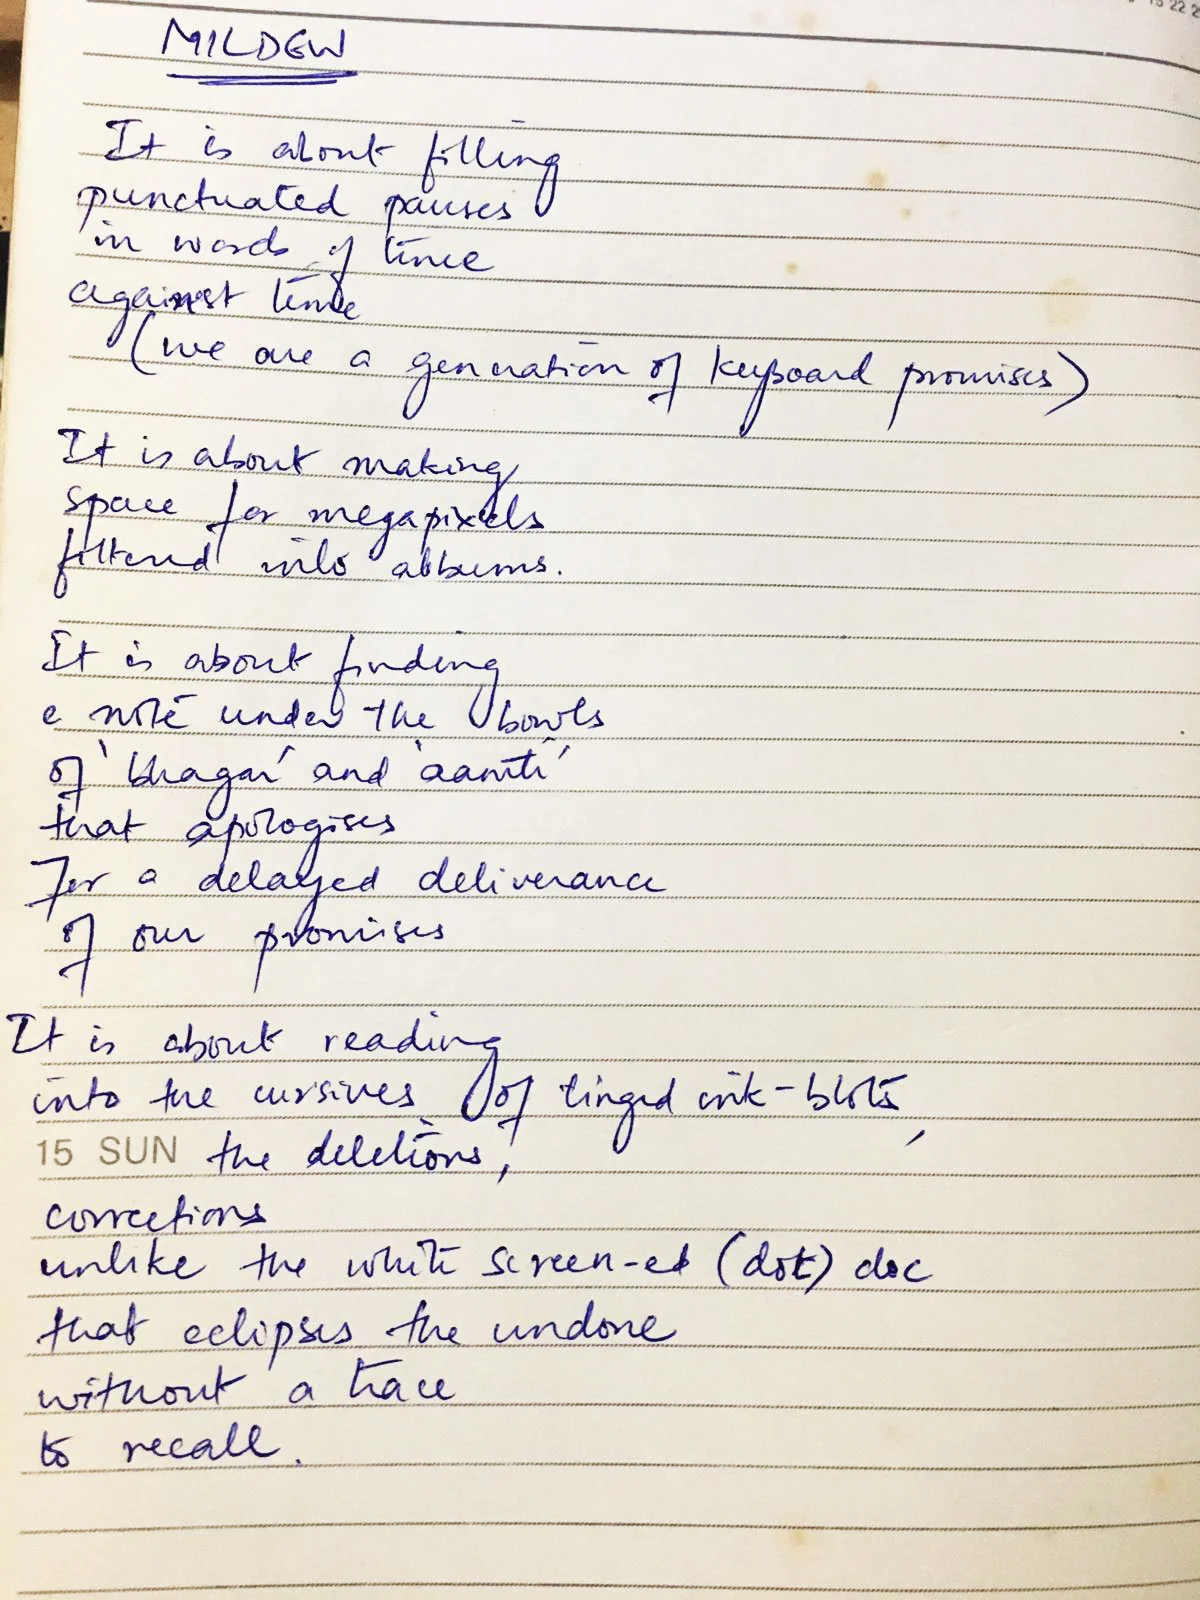 15 22 2
MILDEW
It is about filling
punctuated pauses
in words of time
against time
(we are a generation of keyboard promises)
It is about making
space for megapixels
filtered into albums.
It is about finding
a note under the bowls
of 'bhagar' and 'aamti'
that apologises
for a delayed deliverance
of our promises
It is about reading
into the cursives of tinged ink-blots,
15 SUN the deletions,
corrections
unlike the white screen-ed (dot) doc
that eclipses the undone
without a trace
to recall.